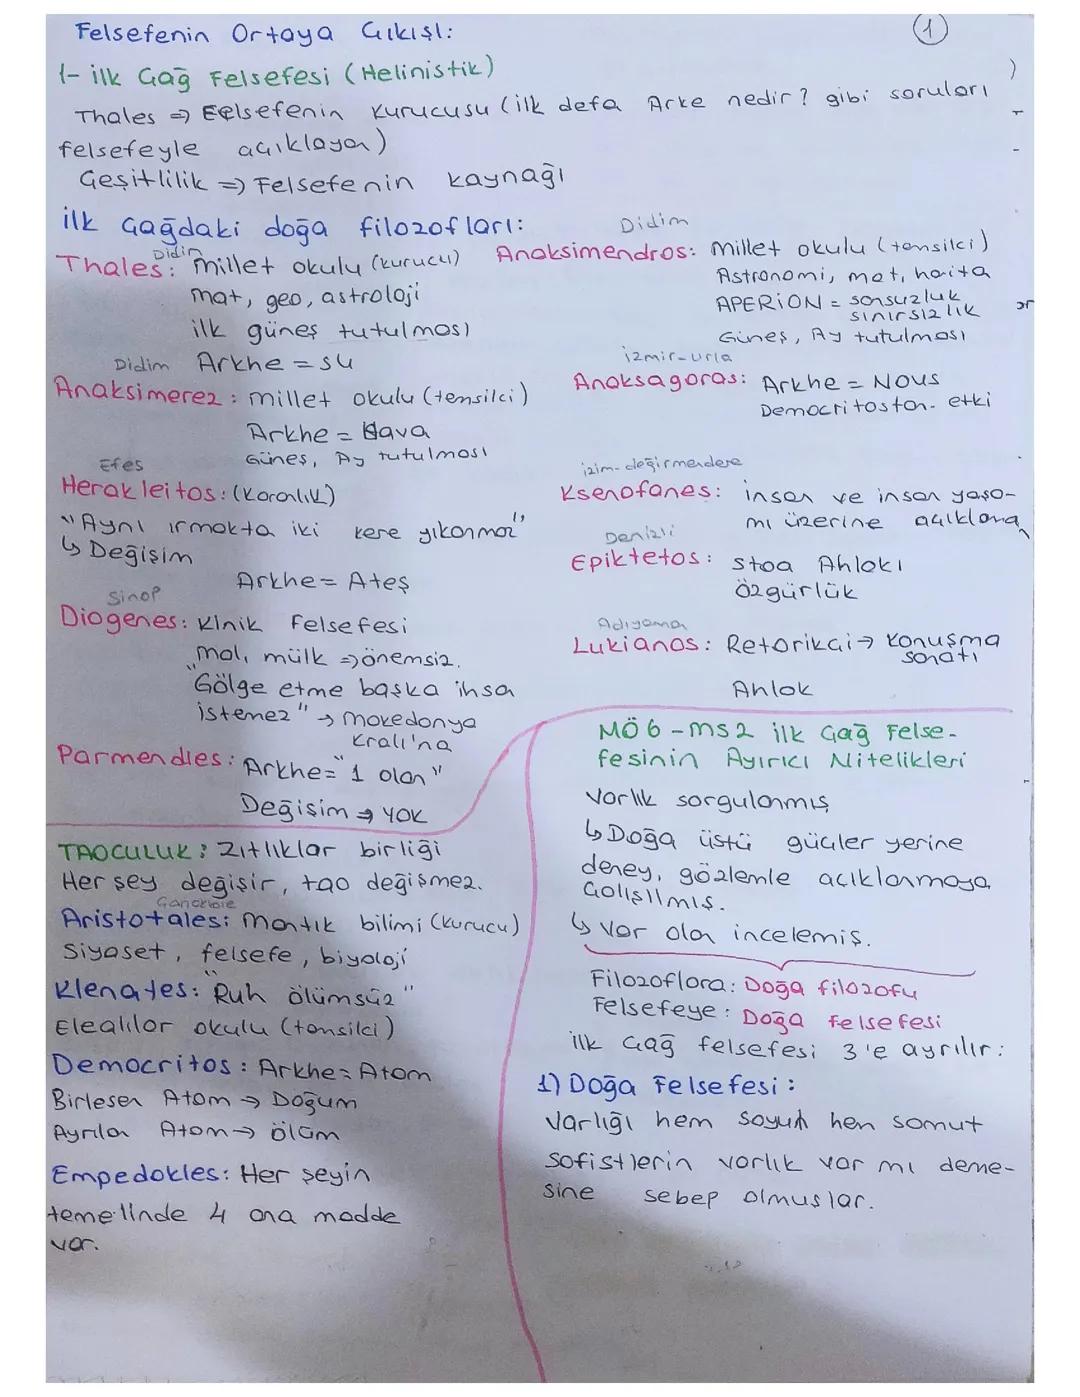 Felsefenin Ortaya Çıkışı:
1
1- ilk Çağ Felsefesi (Helinistik)
Thales => Felsefenin kurucusu (ilk defa Arke nedir? gibi soruları
felsefeyle açıklayan)
Çeşitlilik => Felsefenin kaynağı
ilk Çağdaki doğa filozofları:
Didim
Thales: millet okulu (kurucu)
mat, geo, astroloji
ilk güneş tutulması
Arkhe = su
Didim
Anaksimerez: millet okulu (temsilci)
Arkhe = Hava
Güneş, Ay tutulması
Efes
Herakleitos: (Karanlık)
"Aynı ırmakta iki kere yıkanmaz"
↳ Değişim
Arkhe = Ateş
Sinop
Diogenes: Kinik Felsefesi
mal, mülk => önemsiz.
"Gölge etme başka ihsan
istemez" → makedonya
Kralı'na
Parmendies: Arkhe= "1 olan"
Değişim → YOK
Didim
Anaksimendros: millet okulu (temsilci)
Astronomi, mat, harita
APERİON = sonsuzluk
sınırsızlık
Güneş, Ay tutulması
izmir-urla
Anaksagoras: Arkhe = Nous
Democritostan etki
izim-değirmendere
Ksenofanes: insan ve insan yaşa-
mı üzerine açıklama
Denizli
Epiktetos: Stoa Ahlakı
Özgürlük
Adıyaman
Lukianos: Retorikçi → konuşma
sanatı
Ahlak
TAOCULUK: Zıtlıklar birliği
Her şey değişir, tao değişmez.
Aristotales: Mantık bilimi (kurucu)
Siyaset, felsefe, biyoloji
Klenates: "Ruh ölümsüz"
Elealılar okulu (temsilci)
Democritos: Arkhe= Atom
Birleşen Atom → Doğum
Ayrılan Atom → ölüm
Empedokles: Her şeyin
temelinde 4 ana madde
var.
MÖ 6 - ms 2 ilk Çağ Felse-
fesinin Ayırıcı Nitelikleri
Varlık sorgulanmış
↳ Doğa üstü güçler yerine
deney, gözlemle açıklanmaya
çalışılmış.
↳ Var olan incelemiş.
Filozoflara: Doğa filozofu
Felsefeye: Doğa felsefesi
ilk Çağ felsefesi 3'e ayrılır:
1) Doğa Felsefesi:
Varlığı hem soyut hem somut
Sofistlerin varlık var mı deme-
sine sebep olmuşlar.